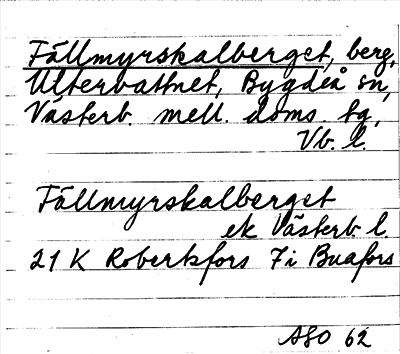 Fällmyrskalberget, berg,
Ultervattnet, Bygdeå sn,
Västerb. mell. doms. tg,
Vb. l.
Fällmyrskalberget
ek Västerb. l.
21 K Robertsfors 7i Buafors
ASO 62